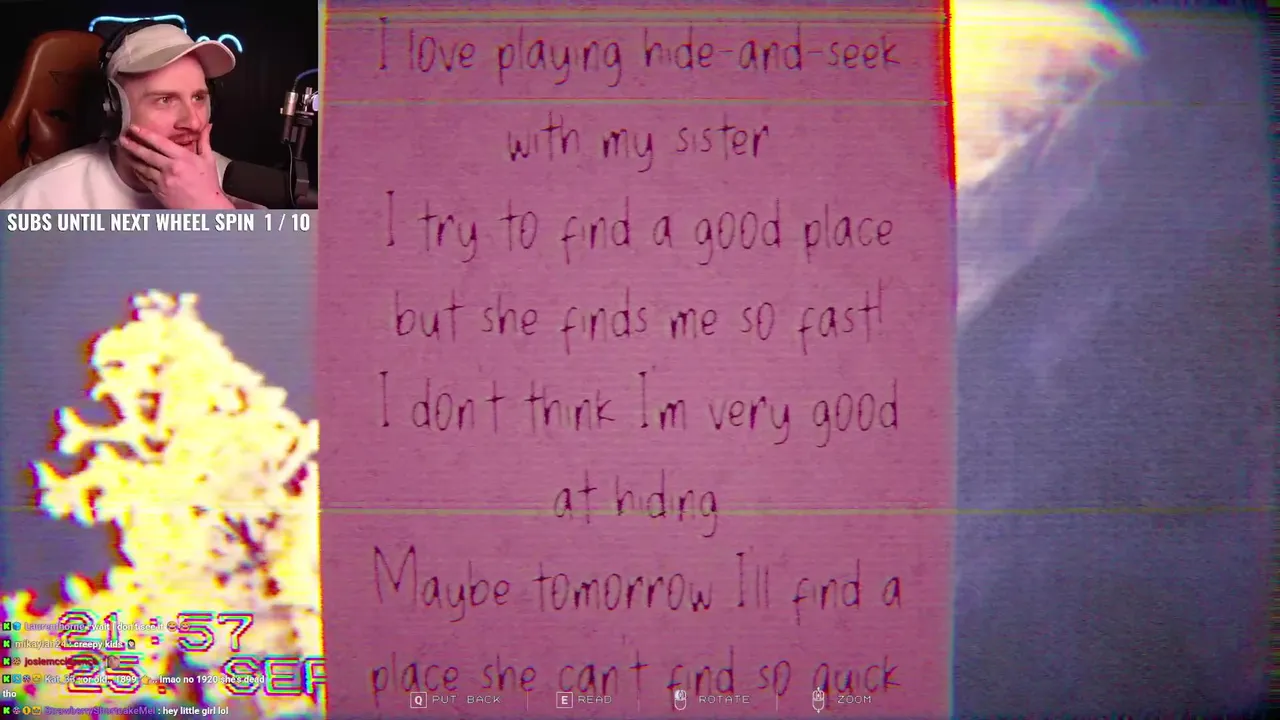 I love playing hide-and-seek
with my sister
I try to find a good place
but she finds me so fast!
I don't think I'm very good
at hiding
Maybe tomorrow I'll find a
place she can't find so quick
SUBS UNTIL NEXT WHEEL SPIN 1 / 10
21:57
25. SEP
creepy kids
lmao no 1920 she's dead
tho
: hey little girl lol
Q PUT BACK
E READ
ROTATE
ZOOM